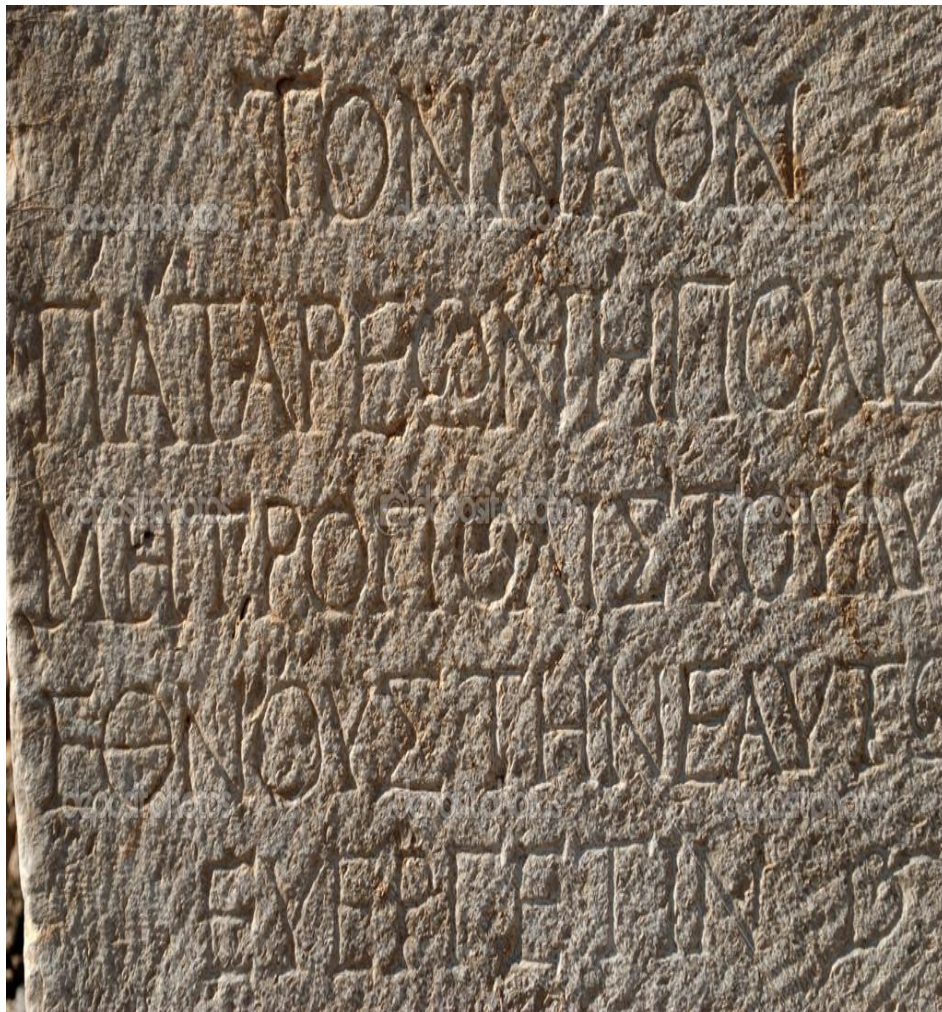 ΤΟΝ ΝΑΟΝ
ΠΑΤΑΡΕΩΝ Η ΠΟΛΙΣ
ΜΗΤΡΟΠΟΛΙΣ ΤΟΥ ΛΥ
ΕΘΝΟΥΣ ΤΗΝ ΕΑΥΤΩ
ΕΥΕΡΓΕΤΙΝ